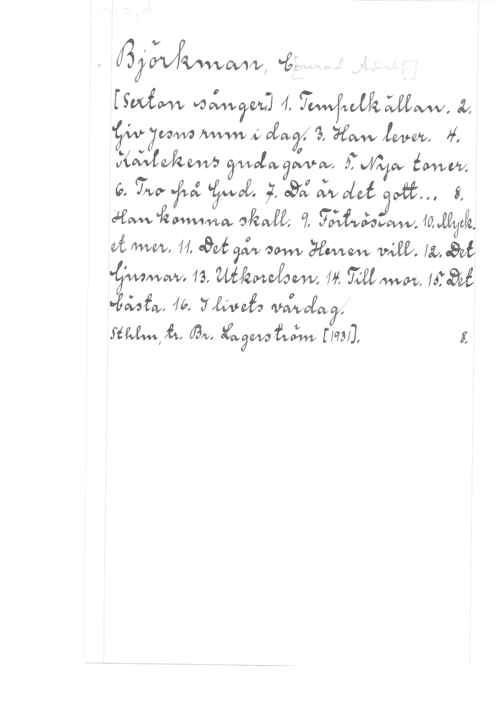 Björkman, Conrad
[Sexton sånger.] 1. Tempelkällan. 2.
Giv Jesus rum i dag! 3. Han lever. 4.
Kärlekens gudagåva. 5. Nya toner.
6. Tro på Gud. 7. Då är det gott... 8.
Han komma skall. 9. Förtröstan. 10. Myck-
et mer. 11. Det går som Herren vill. 12. Det
ljusnar. 13. Utkorelsen. 14. Till mor. 15. Det
bästa. 16. I livets vårdag.
Sthlm, tr. Br. Lagerström [1931]. 8.